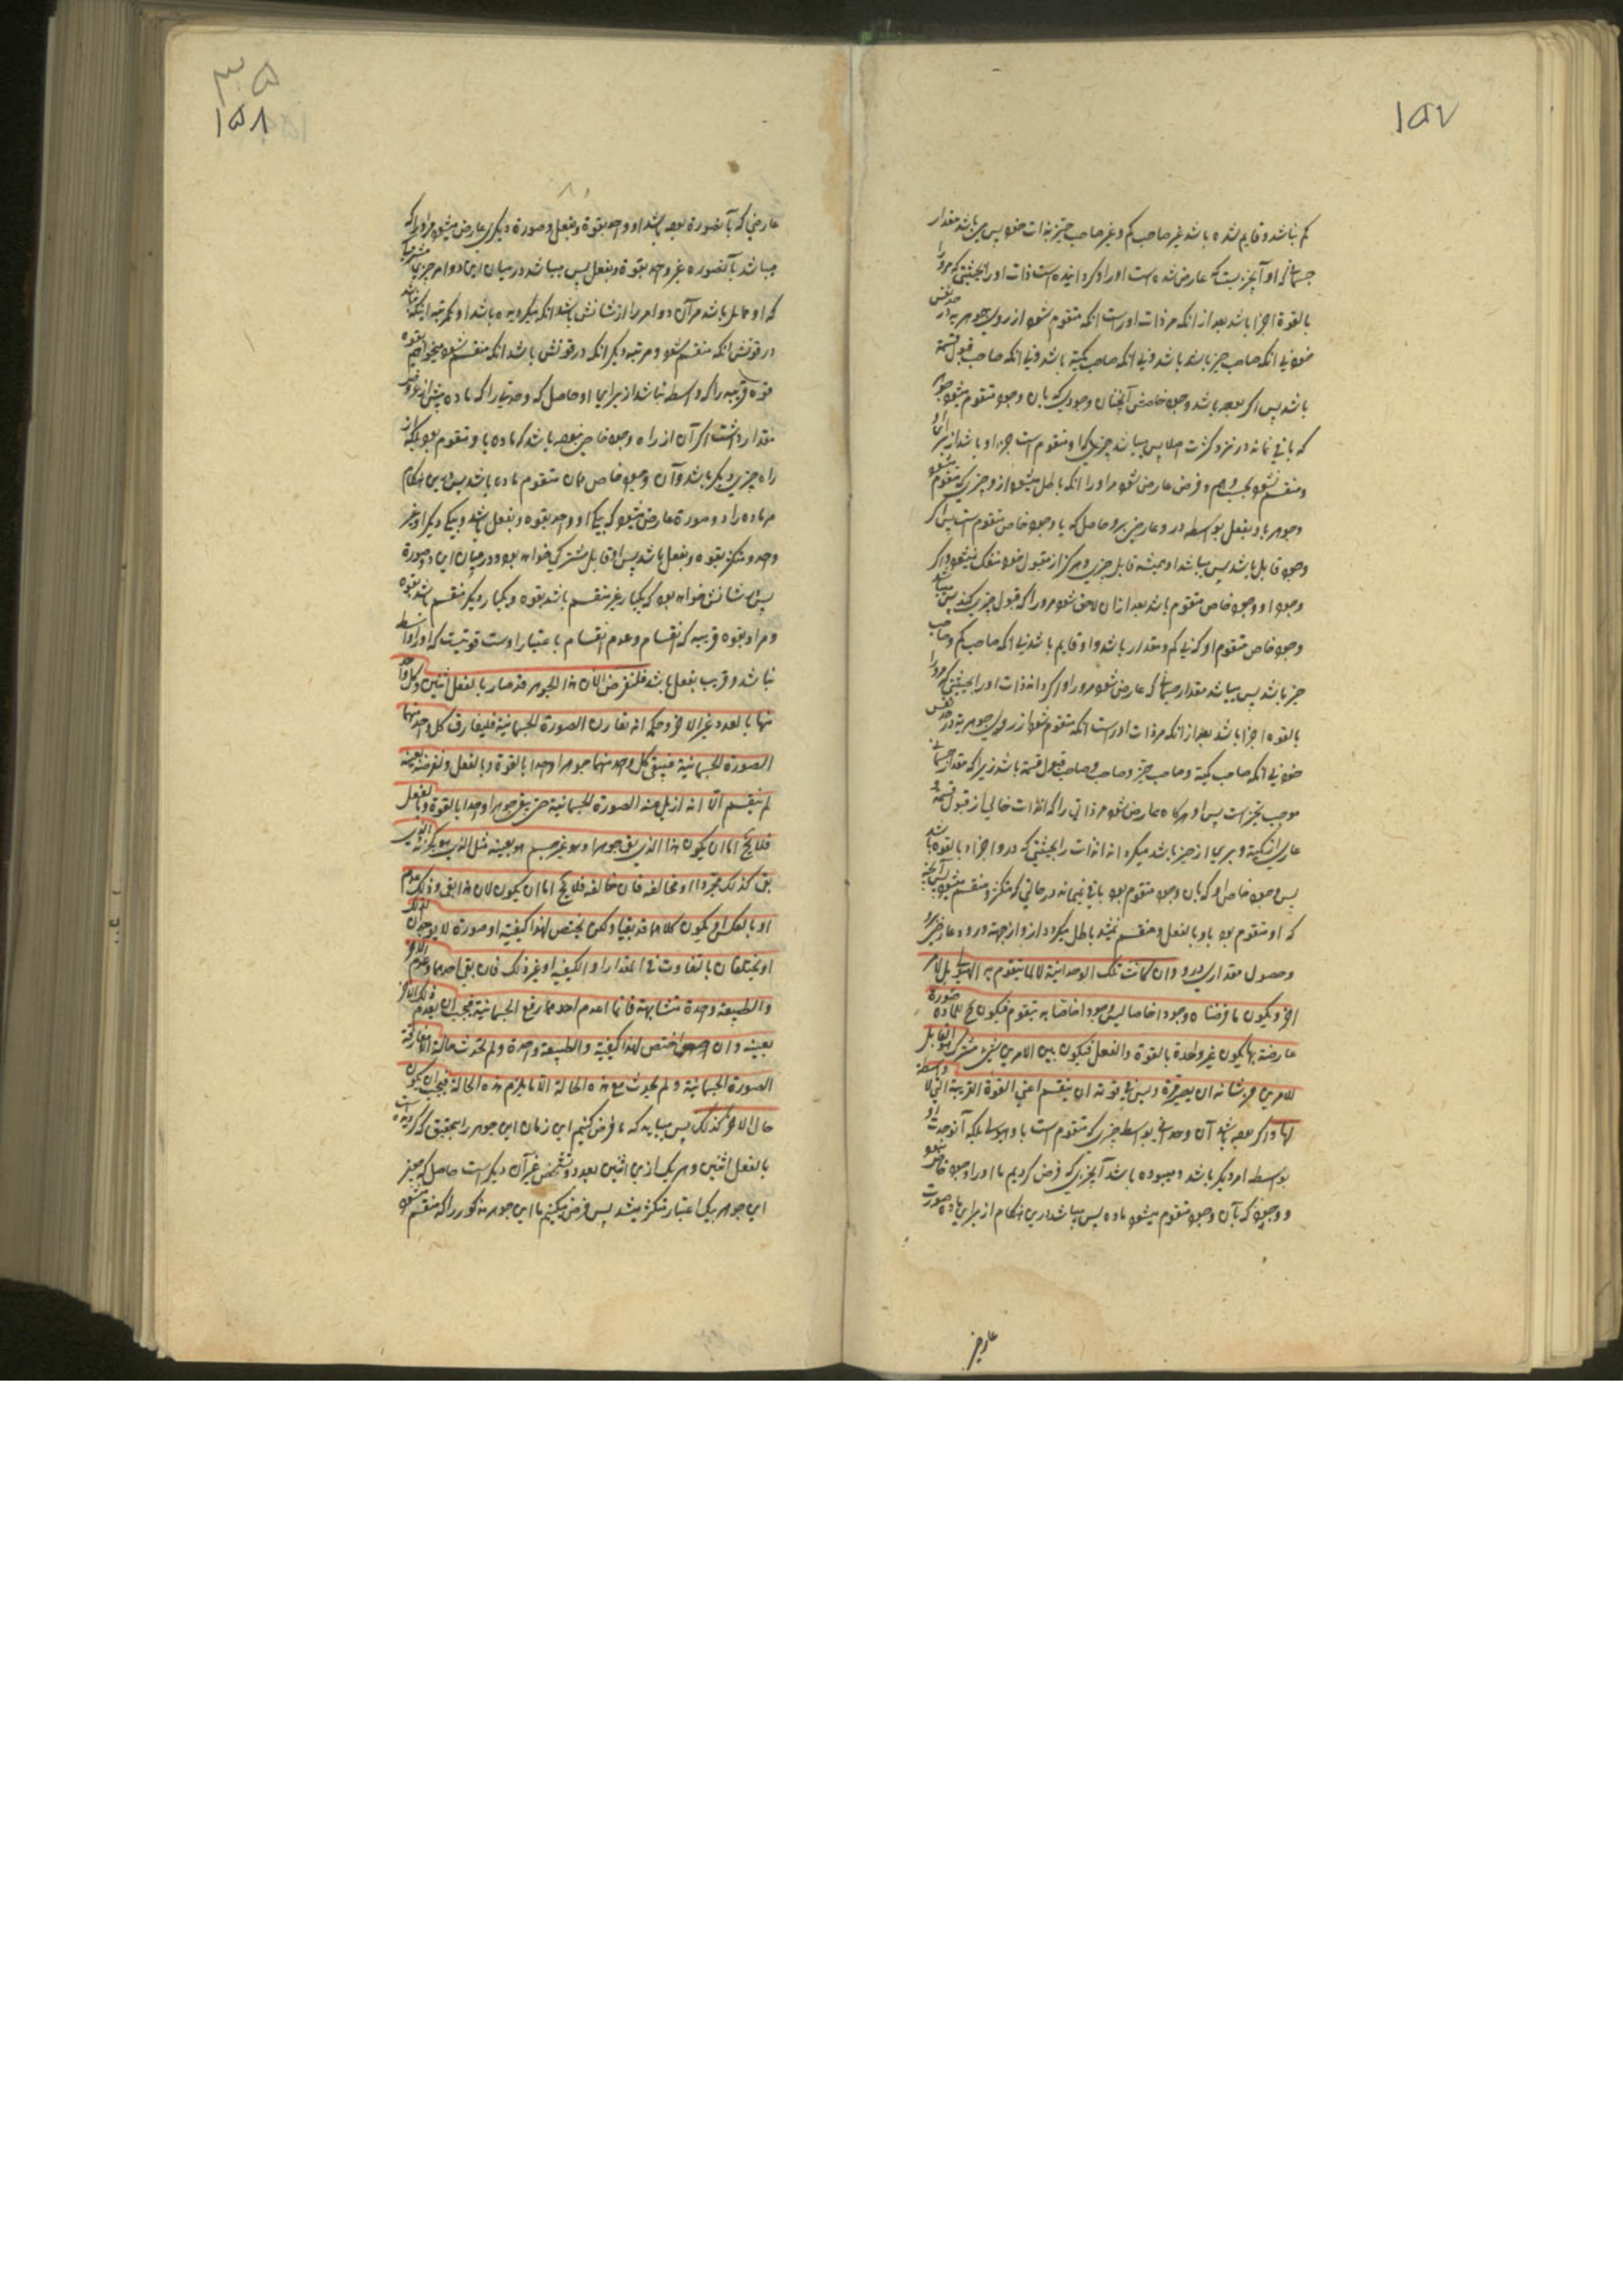 ١٥٧
کم نباشد و قایم شده باشد غیر صاحب کم و غیر صاحب حیز بذات خود پس می باشد مقدار
جسمانی او آنچیزیست که عارض شده است او را و گردانیده است ذات او را بحیثیتی که مرو را
بالقوة اجزا باشد بعد از انکه مر ذات او راست انکه متقوم شود از روی جوهریه در حد نفس
خود بی انکه صاحب حیز باشد و بی انکه صاحب کمیة باشد و بی انکه صاحب قبول قسمة
باشد پس اگر بوده باشد وجود خاصش آنچنان وجودی که بان وجود متقوم میشود
که باقی نماند در نزد کثرت
و منقسم نشود بحسب وهم و فرض عارض شود مر او را انکه باطل میشود ازو چیزی که متقوم
وجود قابل باشد پس میباشد او همیشه قابل چیزی و هرگز از مقبول خود منفک نمیشود و اگر
وجود او وجود خاص متقوم باشد بعد ازان لاحق شود مرو را که قبول چیزی کند پس
وجود خاص متقوم او که بی کم و مقدار باشد و او قایم باشد بی انکه صاحب کم و صاحب
حیز باشد پس میباشد مقدار جسمانی که عارض شود مرو را و گرداند ذات او را بحیثیتی که مرو را
بالقوه اجزا باشد بعد از انکه مر ذات او راست انکه متقوم شود از روی جوهریه در حد نفس
خود بی انکه صاحب کمیة و صاحب حیز و صاحب قبول قسمة باشد زیرا که مقدار جسمانی
موجب تحیز است پس او هرگاه عارض شود مر ذاتی را که انذات خالی از قبول قسمة
عاری از کمیة و بری از حیز باشد میگرداند انذات را بحیثیتی که درو اجزاء بالقوه باشد
پس وجود خاص او که بان وجود متقوم بود باقی نمیماند در حالتی که متکثر و منقسم میشود
که او متقوم بود باو بالفعل و منقسم نمیشد باطل میگردد ازو از جهة ورود عارضی برو
و حصول مقداری درو وان کانت تلک الوحدانیة لا لما یتقوم به الهیولی بل لامر
اخر و یکون ما فرضناه وجودا خاصا لیس وجودا خاصا به یتقوم فیکون ح للمادة صورة
عارضة بها یکون غیر واحدة بالقوة والفعل فیکون بین الامرین شیء مشترک هو القابل
للامرین من شانه ان یصیر مرة و لیس فی قوته ان ینقسم اعنی القوة القریبة التی لا واسطة
لها و اگر بوده باشد آن وحدانی بواسطه چیزی که متقوم است باو هیولی بلکه آنوحدت او
بواسطه امر دیگر باشد و میبوده باشد آنچیزی که فرض کردیم ما او را وجود خاص
و وجودی که بآن وجود متقوم میشود ماده پس میباشد درین هنگام از برای ماده صورت
عارضی
٣٥
١٥٨
عارضی که بآنصورة بوده باشد او واحد بقوة و بفعل و صورة دیگری عارض میشود مر او را که
میباشد بآنصوره غیر واحد بقوة و بفعل پس میباشد در میان این دو امر چیزی مشترک
که او قابل باشد مر آن دو امر را از شانش باشد انکه بگردیده باشد او یکمرتبه
در قوتش انکه منقسم شود و مرتبه دیگر انکه در قوتش باشد انکه منقسم شود میخواهم بقوه
قوة قریبه را که واسطه نباشد از برای او
راه چیزی دیگر باشد و آن وجود خاص همان متقوم ماده باشد پس درین هنگام
مر ماده را دو صورة عارض میشود که بیکی او واحد بقوه و بفعل باشد و بیکی دیگر او غیر
واحد و متکثر بقوه و بفعل باشد پس او قابل مشترکی خواهد بود در میان این دو صورة
پس شانش خواهد بود که یکبار غیر منقسم باشد بقوه و یکبار دیگر منقسم باشد بقوه
و مراد بقوه قریبه که انقسام و عدم انقسام باعتبار اوست قوتیست که او را واسطه
نباشد و قریب بفعل باشد فلنفرض الان هذا الجوهر قد صار بالفعل اثنین و کل واحد
منها بالعدد غیر الاخر و حکمه انه یقارن الصورة الجسمانیة فلیفارق کل واحد منهما
الصورة الجسمانیة فیبقی کل واحد منهما جوهرا واحدا بالقوة و بالفعل و لنفرضه بعینه
لم ینقسم الا انه ازیل عنه الصورة الجسمانیة حتی بقی جوهرا واحدا بالقوة و بالفعل
فلا یخ اما ان یکون هذا الذی بقی جوهرا و هو غیر جسم هو بعینه مثل الذی هو کجزئه الذی
بقی کذلک مجردا او مخالفه فان خالفه فلا یخ اما ان یکون لان هذا بقی و ذلک عدم
او بالعکس او یکون کلاهما قد بقیا و لکن یختص لهذا کیفیة او صورة لا یوجد لذلک
او یختلفان بالتفاوت فی المقدار او الکیفیة او غیر ذلک فان بقی احدهما و عدم الاخر
والطبیعة واحدة متشابهة فانما اعدم احدهما رفع الجسمانیة فیجب ان یعدم ذلک الاخر
بعینه و ان اختص لهذا کیفیة والطبیعة واحدة و لم یحدث حالة الا مفارقة
الصورة الجسمانیة و لم یحدث مع هذه الحالة الا ما یلزم هذه الحالة فیجب ان یکون
حال الاخر کذلک پس میباید که ما فرض کنیم این زمان این جوهر را بتحقیق که گردیده است
بالفعل اثنین و هر یک ازین اثنین بعدد و تشخص غیر آن دیگر است حاصل که هر
این جوهر بیک اعتبار متکثر میشد پس فرض میکنیم ما این جوهر مذکور را که منقسم شود